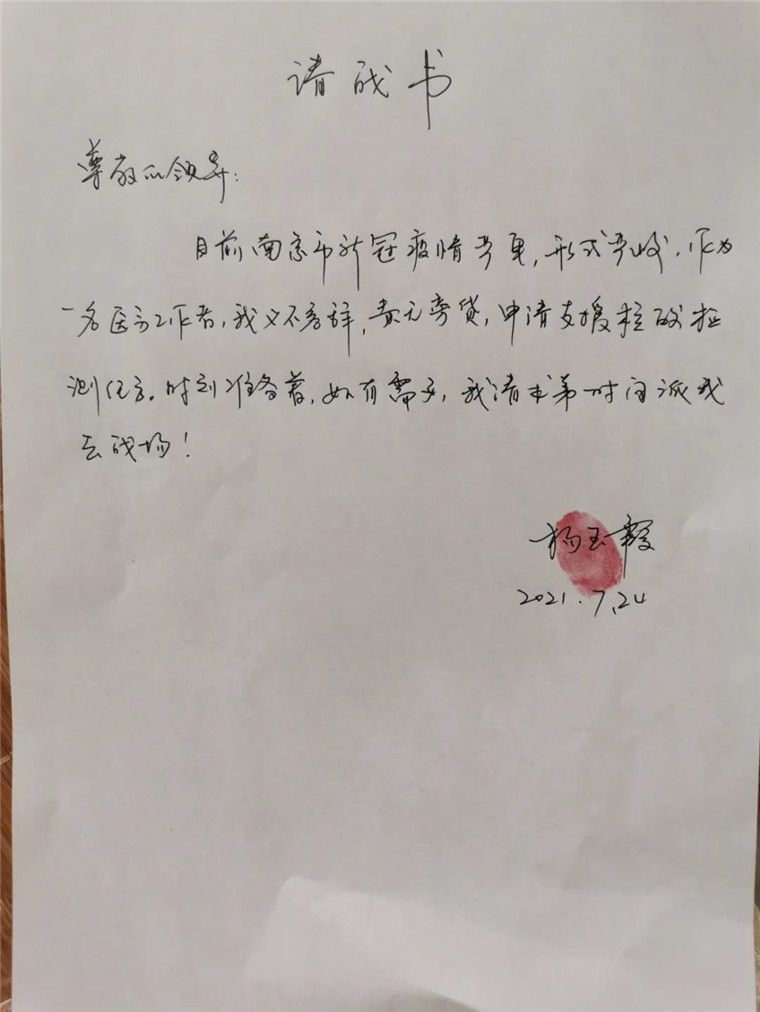 请战书
尊敬的领导：
目前南京市新冠疫情严重，形式严峻，作为
一名医务工作者，我义不容辞，责无旁贷，申请支援核酸检
测任务。时刻准备着，如有需要，我请求第一时间派我
去战场！
杨玉霞
2021.7.24